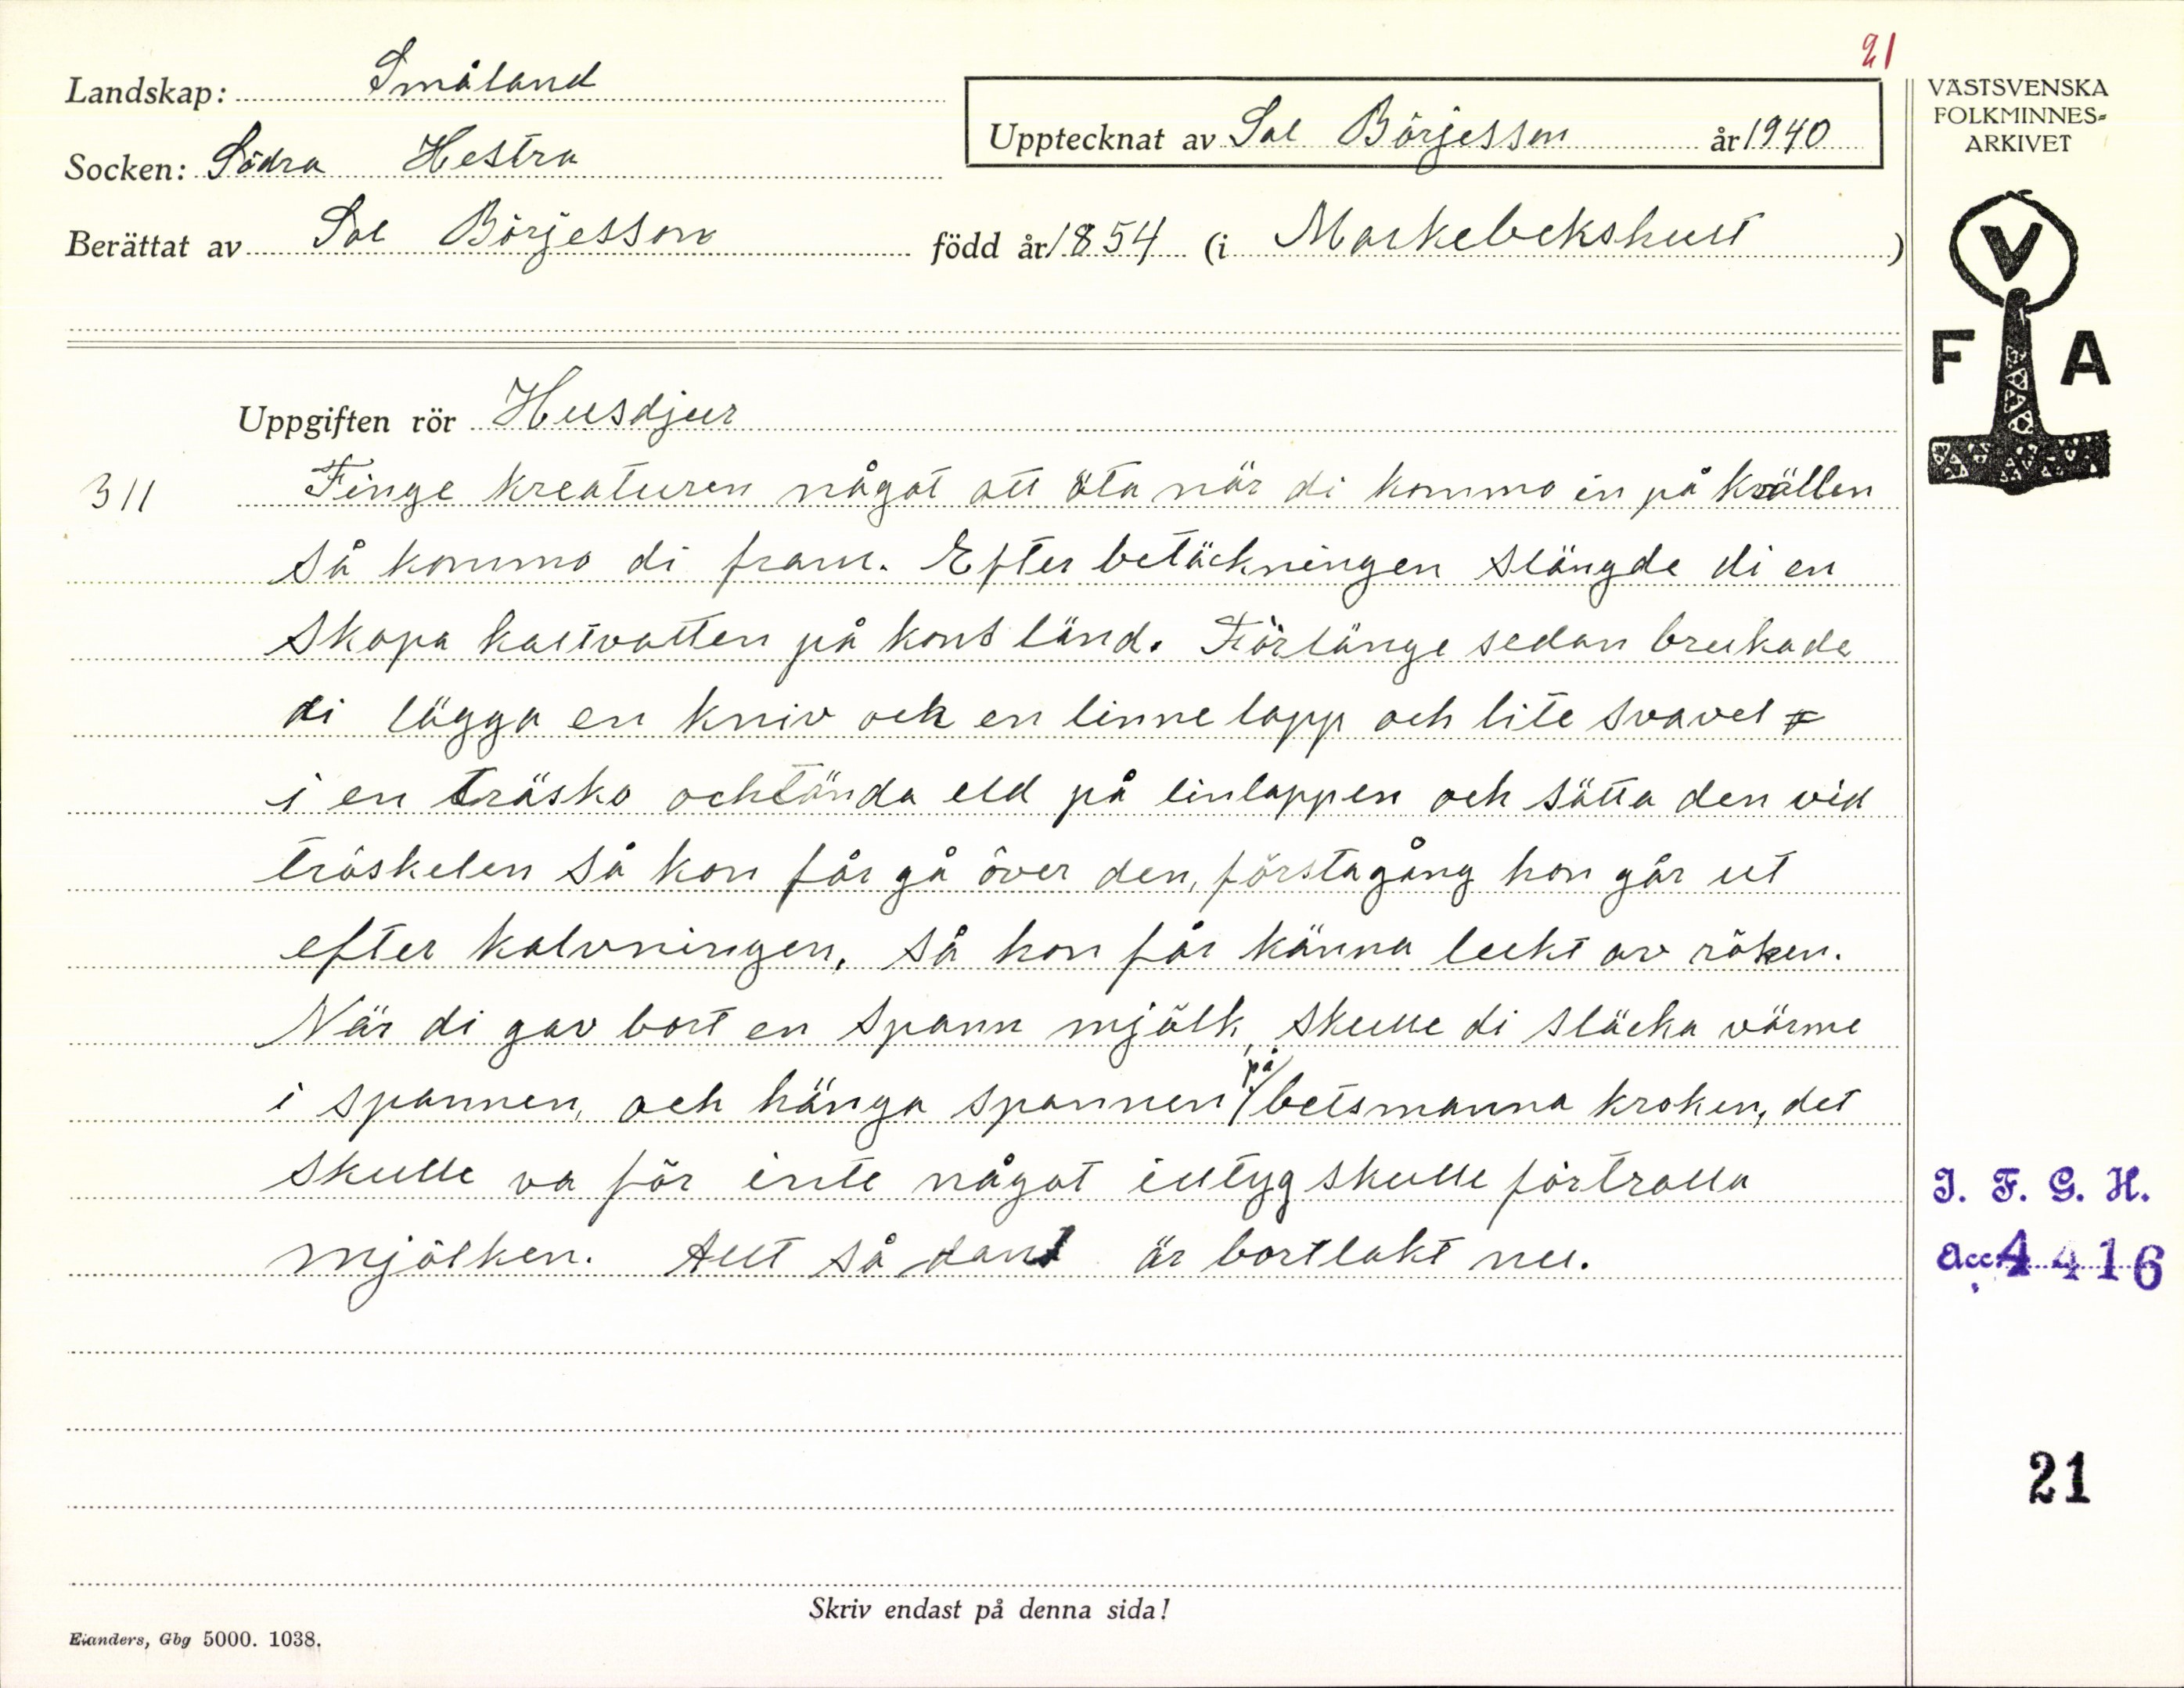 21
Landskap: Småland
Upptecknat av Sal Börjesson år 1940
Socken: Södra Hestra
Berättat av Sal Börjesson född år 1854 (i Markebekshult)
VÄSTSVENSKA
FOLKMINNES-
ARKIVET
V
F A
Uppgiften rör Husdjur
311 Finge kreaturen något att äta när di kommo in på kvällen
så kommo di fram. Efter betäckningen slängde di en
skopa kallvatten på kons länd. Förlänge sedan brukade
di lägga en kniv och en linne lapp och lite svavel
i en träsko och tända eld på linlappen och sätta den vid
tröskelen så kon får gå över den, första gång hon går ut
efter kalvningen, så hon får känna luckt av röken.
När di gav bort en spann mjölk, skulle di släcka värme
i spannen, och hänga spannen på betsmanna kroken, det
skulle va för inte något utyg skulle förtrolla
mjölken. Allt så dant är bortlakt nu.
I. F. G. H.
Acc 4416
21
Skriv endast på denna sida!
Elanders, Gbg 5000. 1038.